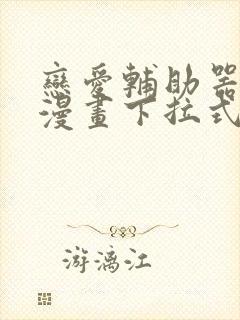 戀愛輔助器
漫畫下拉式
游漓江